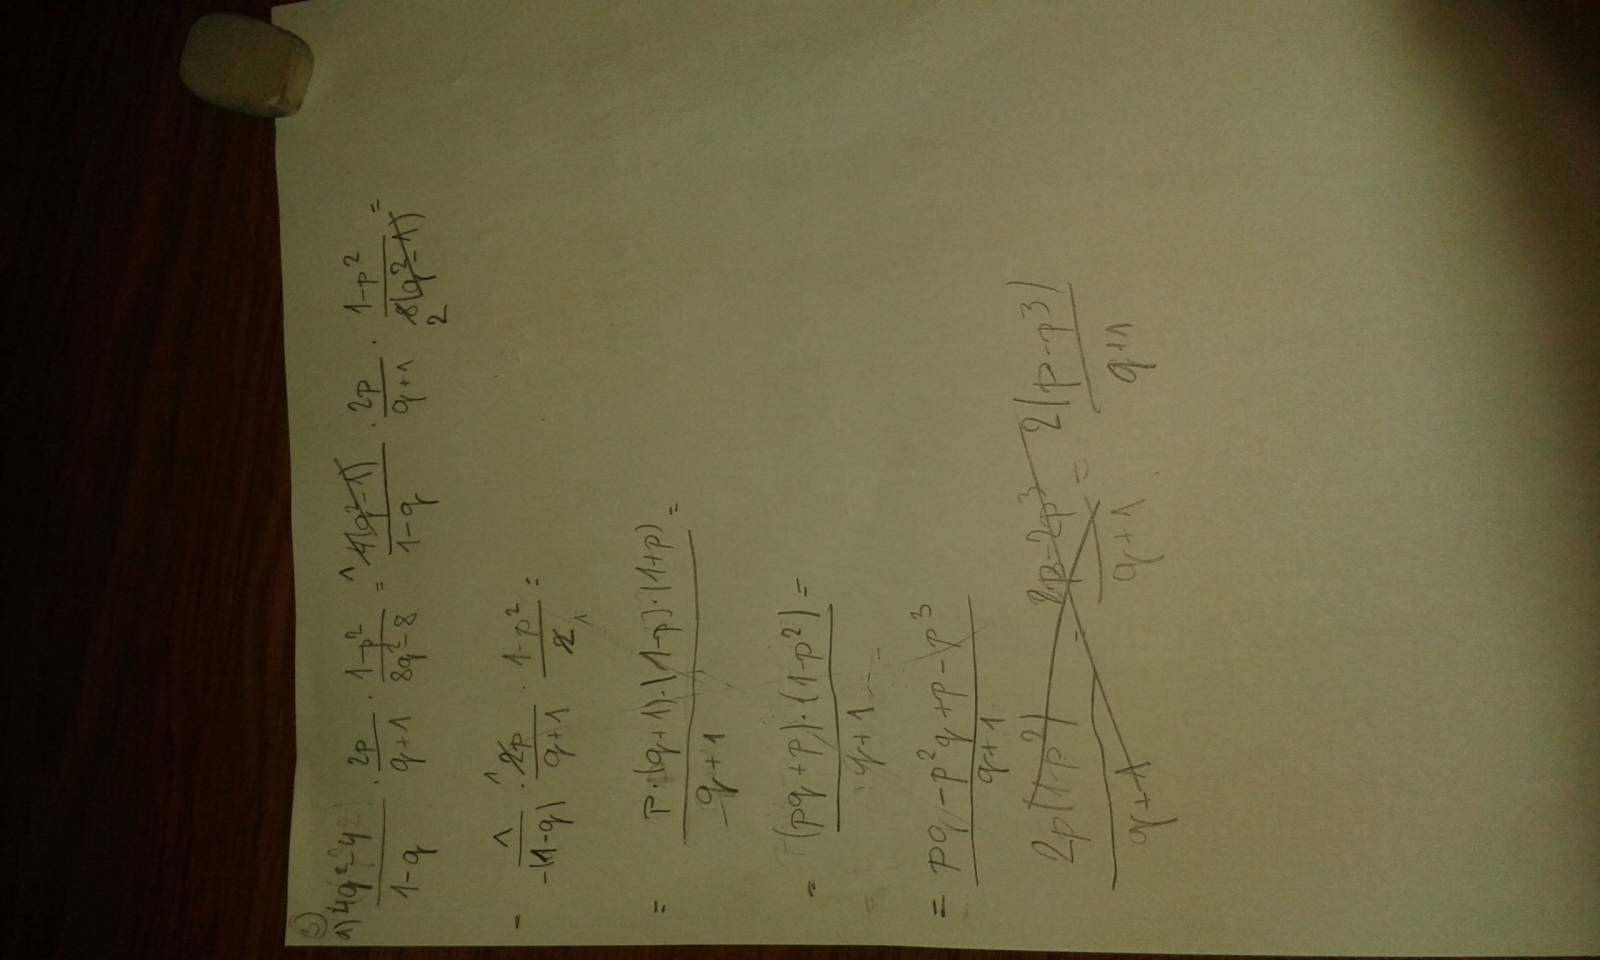 B
a) 4q²-4 / 1-q · 2p / q+1 · 1-p² / 8q²-8 = 4(q²-1) / 1-q · 2p / q+1 · 1-p² / 8(q²-1) =
1 / -(1-q) · 2p / q+1 · 1-p² / 2 =
= p·(q+1)·(1-p)·(1+p) / -q+1 =
= (pq+p)·(1-p²) / q+1 =
= pq-p²q+p-p³ / q+1
2p(1-p²) / q+1 = 2p-2p³ / q+1 = 2(p-p³) / q+1